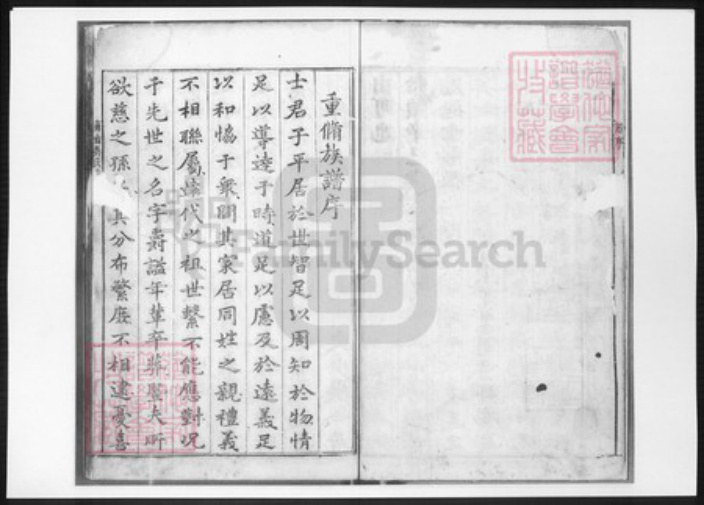 重脩族譜序
士君子平居於世智足以周知於物情
足以導達于時道足以慮及於遠義足
以和恊于衆閧其家居同姓之親禮義
不相聯屬代之祖世繫不能應對况
于先世之名字爵諡年葬卒夫所
欲慈之孫其分布繁庶不相逮憂喜
FamilySearch
猶他家譜學會收藏